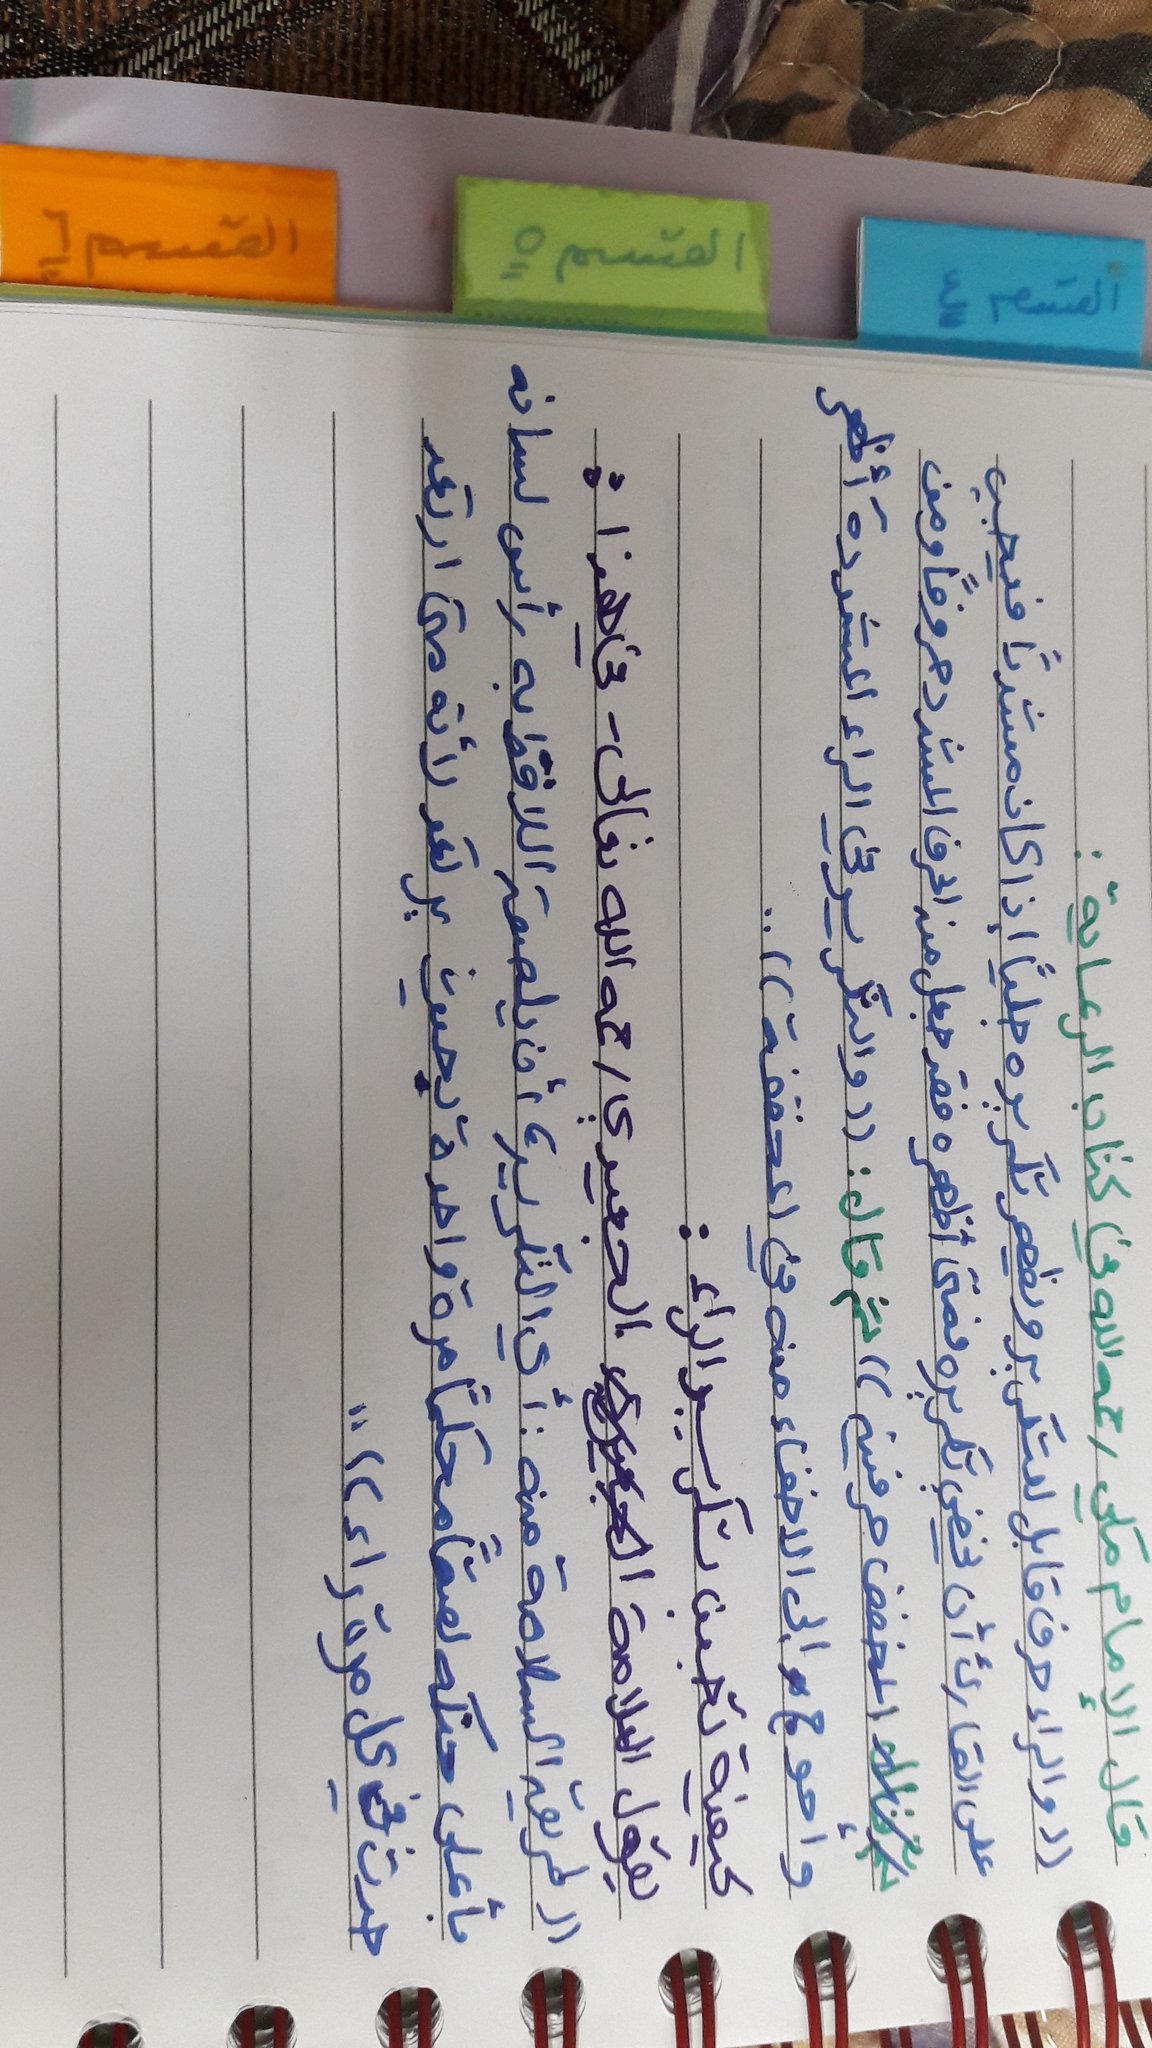 القسم ٤
القسم ٥
القسم ٦
قال الإمام مكي رحمه الله في كتاب الرعاية :
((والراء حرف قابل للتكرير ويظهر تكريره جلياً إذا كان مشدداً فيجب
على القارئ أن يخفي تكريره فمتى أظهره فقد جعل من الحرف المشدد حروفاً ومن
المخفف حرفين)) ثم قال: ((والتكرير في الراء المشددة أظهر
وأحوج إلى الاخفاء منه في المخففة))..
كيفية تجنب تكرير الراء :
يقول العلامة الجعبري رحمه الله تعالى - في هذا :
((طريقة السلامة منه: أي التكرير، أن يلصق اللافظ به رأس لسانه
بأعلى حنكه لصقاً محكماً مرة واحدة بحيث لا يرتعد لأنه متى ارتعد
حدث في كل مرة راء))..